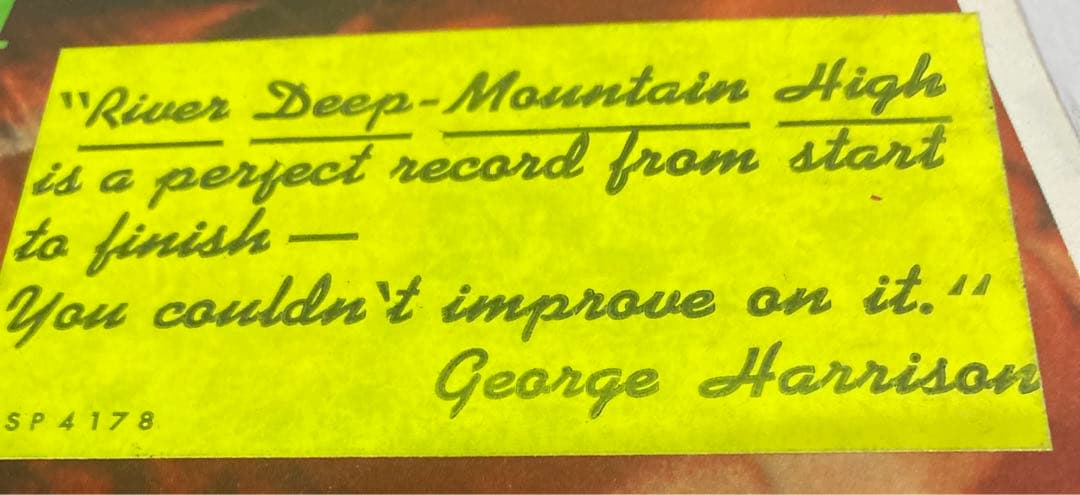 "River Deep-Mountain High
is a perfect record from start
to finish —
You couldn't improve on it."
George Harrison
SP 4178